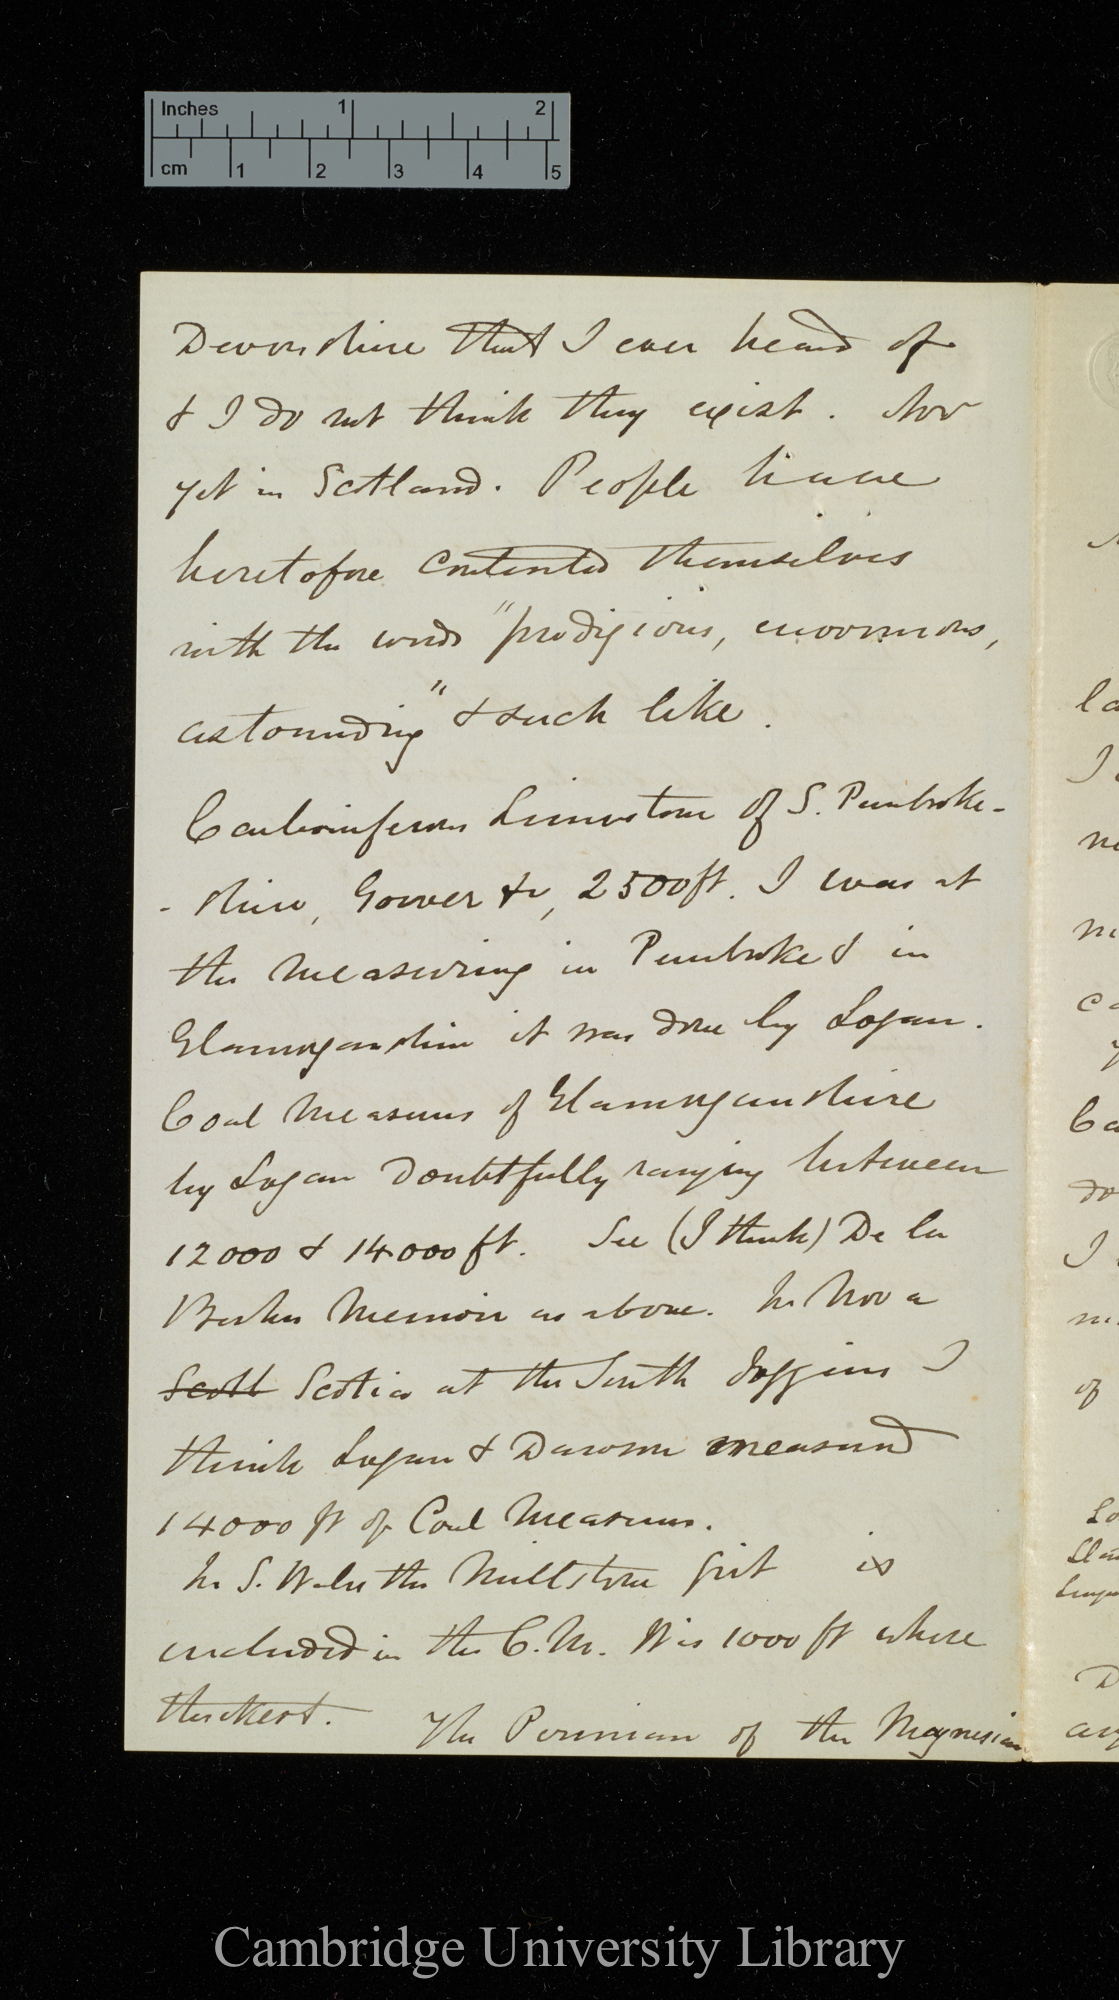 Inches 1 2
cm 1 2 3 4 5
Devonshire that I ever heard of
& I do not think they exist. Nor
yet in Scotland. People have
heretofore contented themselves
with the words "prodigious, enormous,
astounding" & such like.
Carboniferous Limestone of S. Pembroke-
-shire, Gower &c, 2500 ft. I was at
the measuring in Pembroke & in
Glamorganshire it was done by Logan.
Coal Measures of Glamorganshire
by Logan doubtfully ranging between
12000 & 14000 ft. See (I think) De la
Beches Memoir as above. In Nova
Scott Scotia at the South Joggins I
think Logan & Dawson measured
14000 ft of Coal Measures.
In S. Wales the Millstone grit is
included in the C.M. It is 1000 ft where
thickest. The Permian of the Magnesian
Cambridge University Library